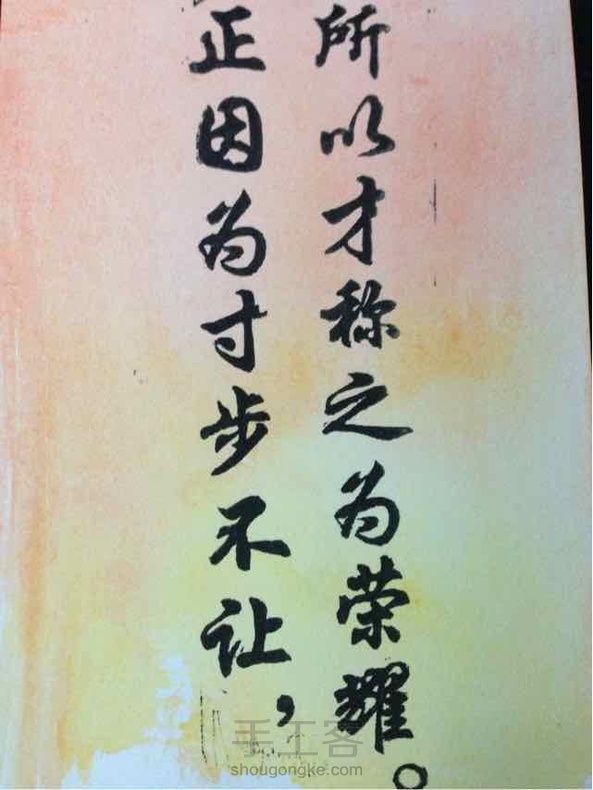 正因为寸步不让，
所以才称之为荣耀。
手工客
shougongke.com